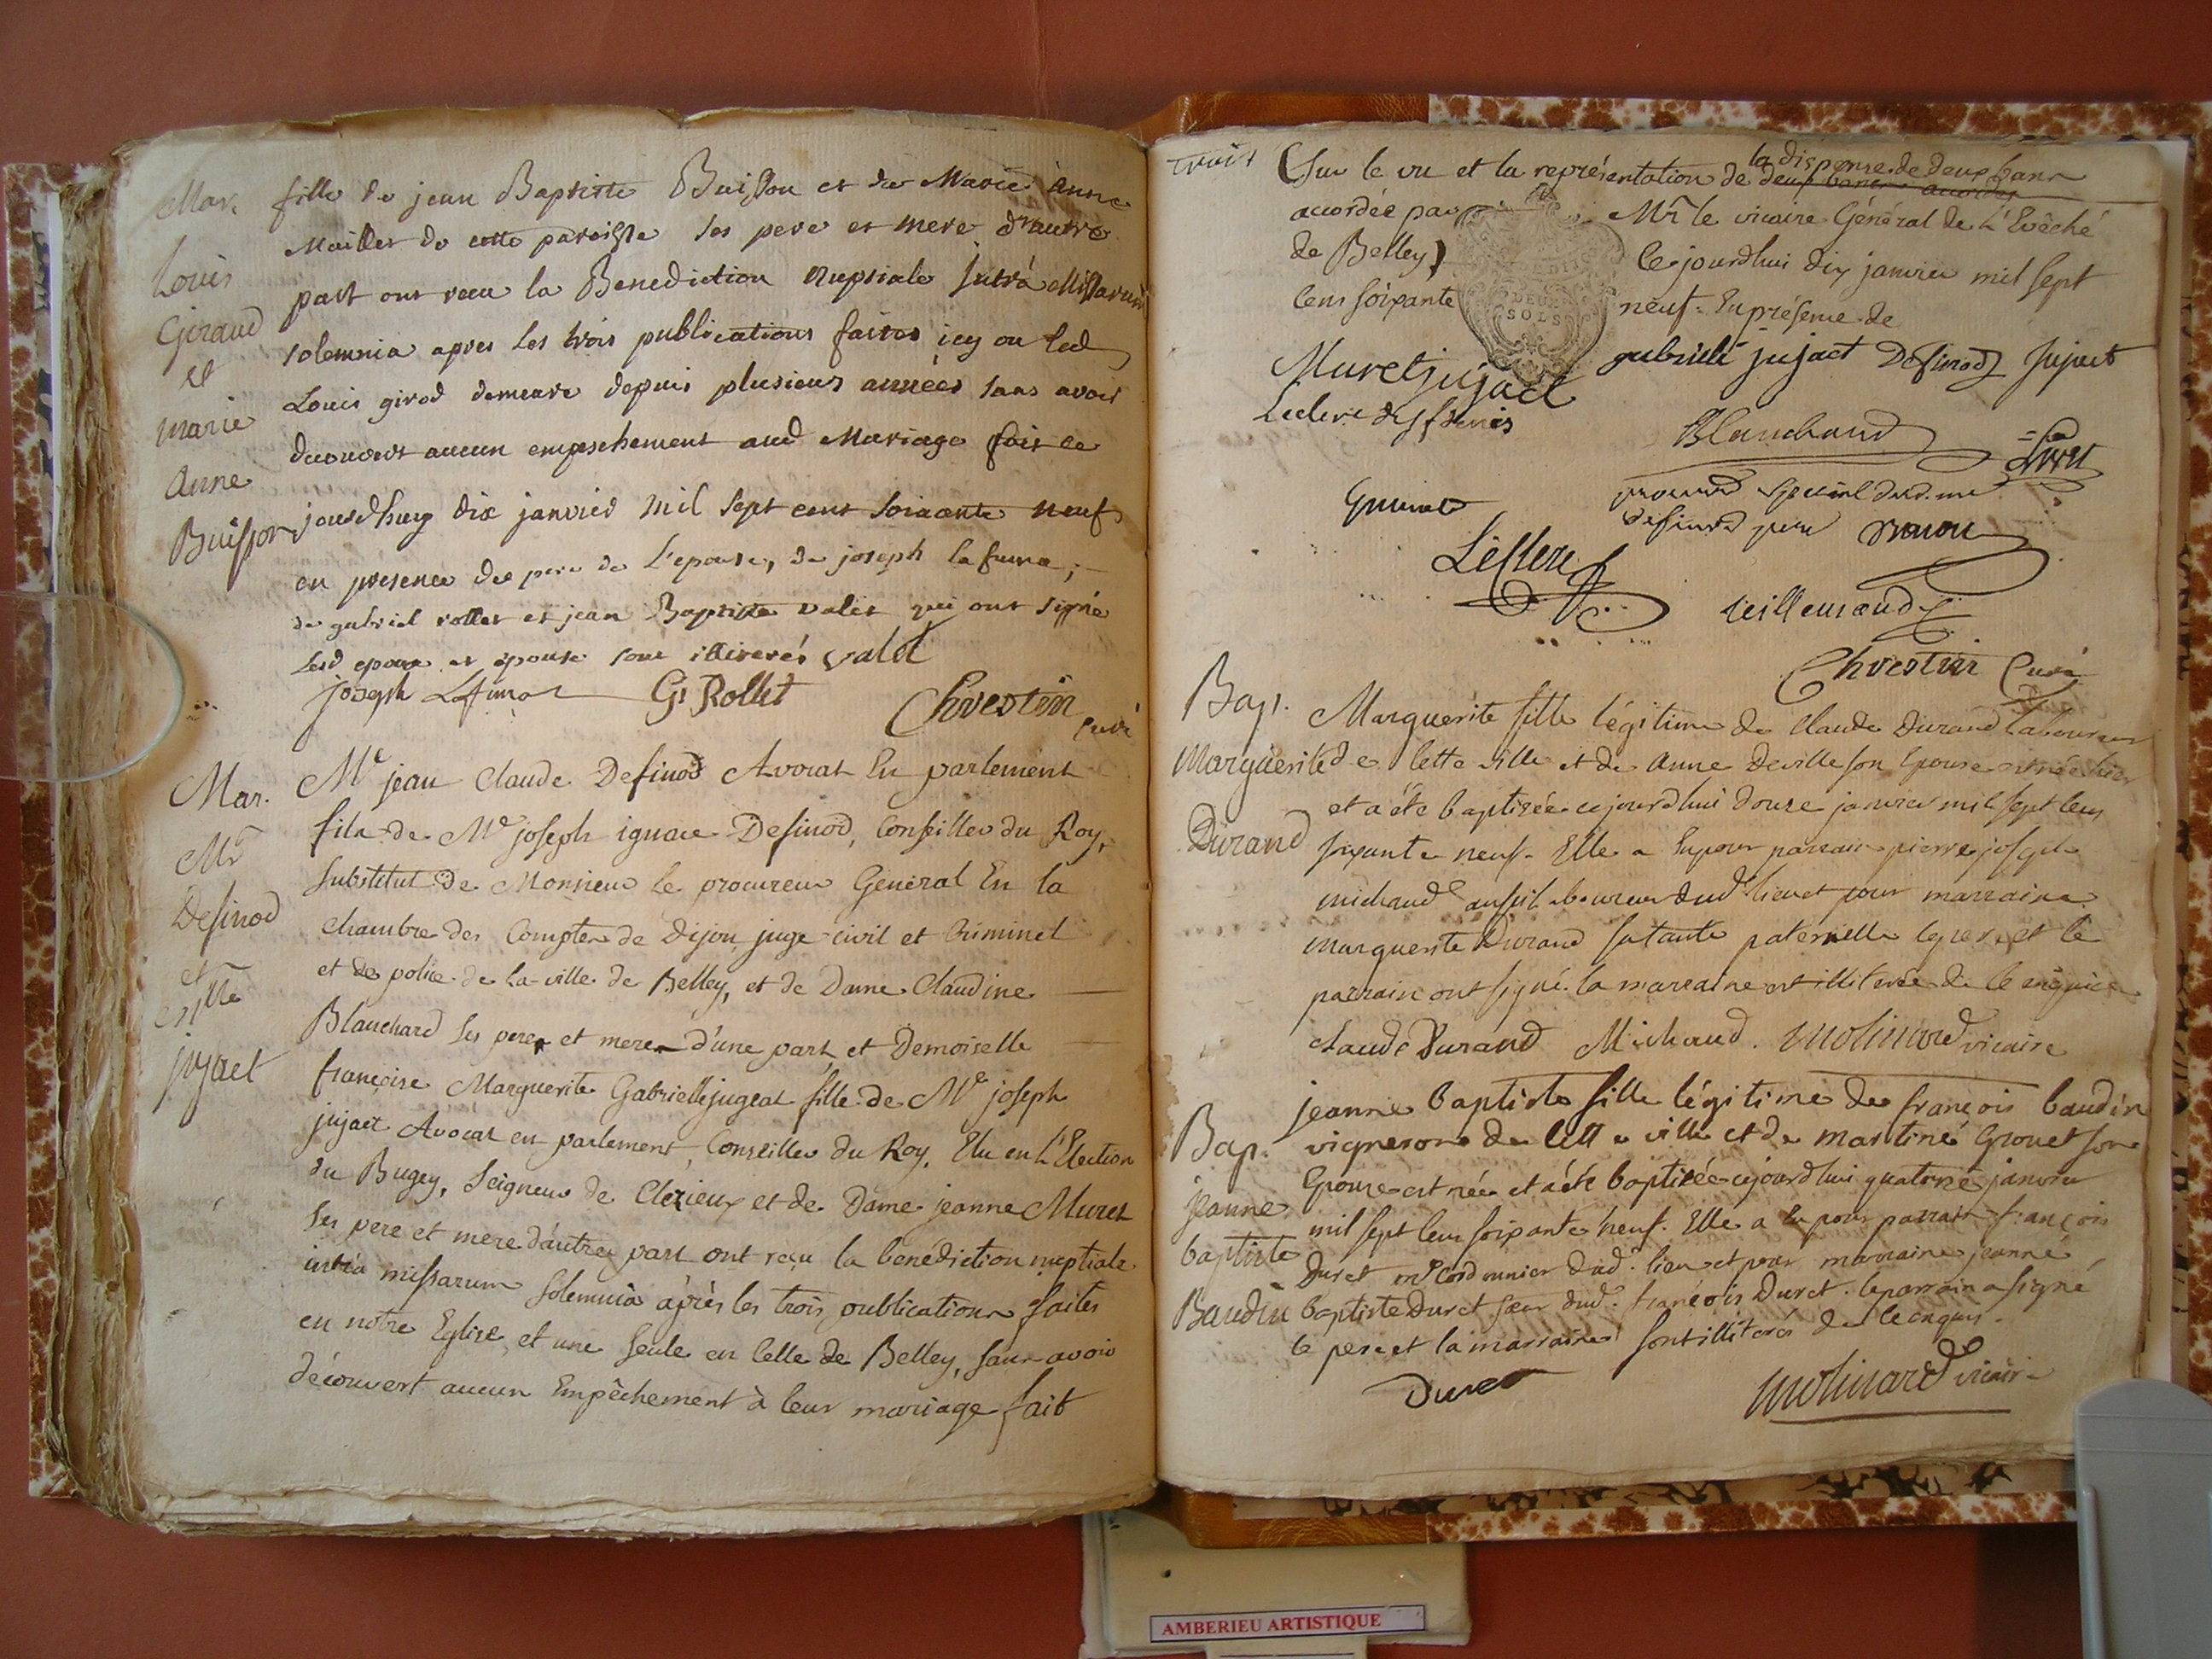 Mar.
Louis
Giraud
et
marie
Anne
Buisson
fille de jean Baptiste Buisson et de Marie Anne
Maillet de cette paroisse ses pere et mere d'autre
part ont recu la Benediction Nuptiale Intrà Missarum
solemnia apres Les trois publications faites icy ou led
Louis girod demeure depuis plusieurs années sans avoir
decouvert aucun empeschement aud Mariage fait ce
jourd'huy dix janvier mil sept cent soixante neuf
en presence des pere de L'epouse, de joseph lafuma,
de gabriel rollet et jean Baptiste valet qui ont signé
lesd epoux et epouse sont illiterés valet
joseph Lafuma G. Rollet Chrestin
curé
Mar.
Mr
Desinod
et
jujact
Me jean Claude Desinod Avocat En parlement
fils de Me joseph ignace Desinod, Conseiller du Roy,
Substitut de Monsieur le procureur Général En la
chambre des Comptes de Dijon juge civil et Criminel
et de police de la ville de Belley, et de Dame Claudine
Blanchard ses pere et mere d'une part et Demoiselle
françoise Marguerite Gabrielle jugeat fille de Me joseph
jujact Avocat en parlement, Conseiller du Roy, Elu en l'Election
du Bugey, Seigneur de Clerieux et de Dame jeanne Muret
ses pere et mere d'autre part ont reçu la benédiction nuptiale
intrà missarum solemnia après les trois publications faites
en notre Eglise, et une seule en Celle de Belley, sans avoir
découvert aucun Empêchement à leur mariage fait
trois
la dispense de deux bans
(Sur le vu et la représentation de deux bans accordés
accordée par Mr le vicaire Général de L'Evêché
de Belley) Cejourdhui dix janvier mil sept
Cens soixante neuf. En présence de
DEUX
SOLS
Muret jujact gabriele jujact Desinod Jujact
Leclerc
Blanchard
procureur special dud. me
desinod pere
Chrestin Curé
Bap.
Marguerite
Durand
Marguerite fille légitime de Claude Durand Laboureur
de Cette ville et de Anne Deville son Epouse est née hier
et a été baptisée cejourdhui douze janvier mil sept Cens
soixante neuf. Elle a Eu pour parrain pierre joseph
michaud aussi laboureur dud. lieu et pour marraine
marguerite Durand sa tante paternelle le pere et le
parrain ont signé. la marraine est illiterée de ce enquise
claude Durand Michaud. Molinard vicaire
Bap.
jeanne
baptiste
Baudin
jeanne baptiste fille légitime de françois baudin
vigneron de Cette ville et de martine Grouet son
Epouse est née et a été baptisée cejourdhui quatorze janvier
mil sept Cens soixante neuf. Elle a Eu pour parrain françois
Duret me Cordonnier dud. lieu et pour marraine jeanne
baptiste Duret soeur dud. françois Duret. le parrain a signé
le pere et la marraine sont illiterés de ce enquis.
Duret Molinard vicaire
AMBERIEU ARTISTIQUE